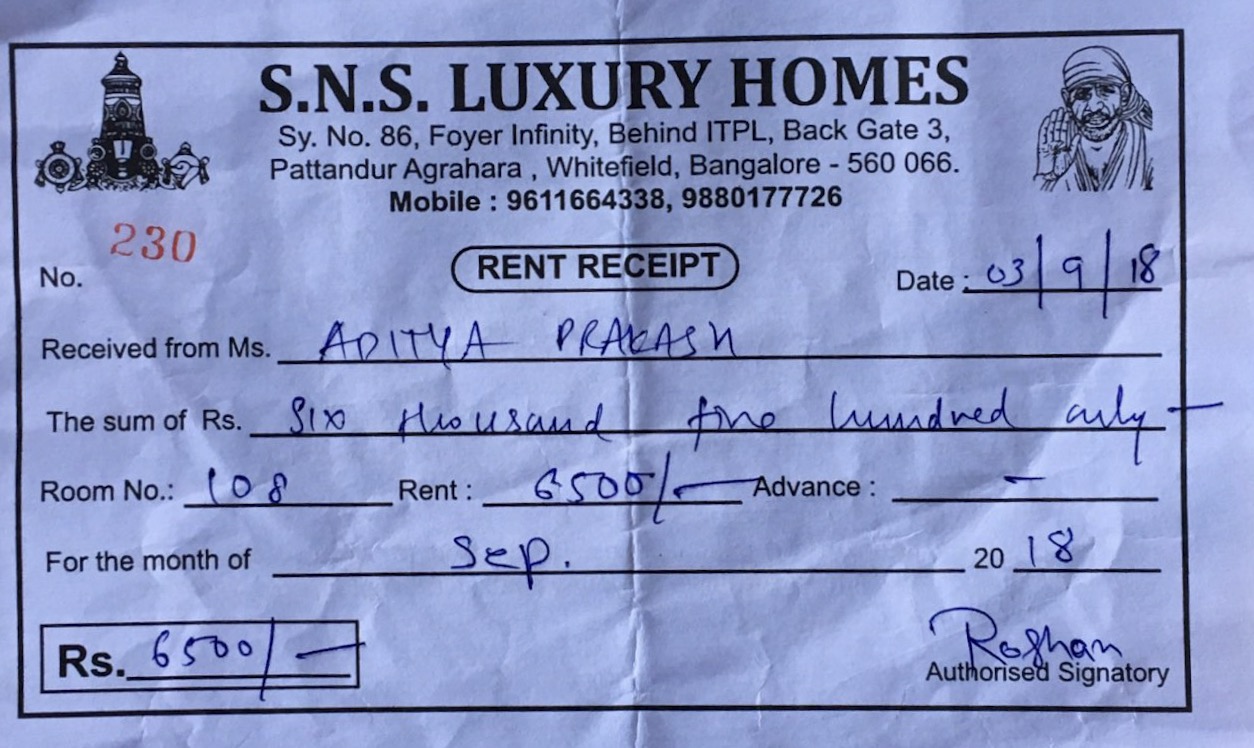 S.N.S. LUXURY HOMES
Sy. No. 86, Foyer Infinity, Behind ITPL, Back Gate 3,
Pattandur Agrahara , Whitefield, Bangalore - 560 066.
Mobile : 9611664338, 9880177726
230
No.
RENT RECEIPT
Date : 03/9/18
Received from Ms. ADITYA PRAKASH
The sum of Rs. Six thousand five hundred only -
Room No.: 108 Rent : 6500/- Advance : -
For the month of Sep. 20 18
Rs. 6500/-
Roshan
Authorised Signatory